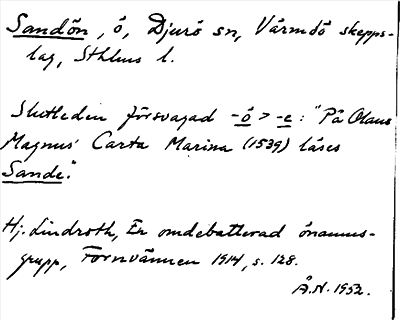 Sandön, ö, Djurö sn, Värmdö skepps-
lag, Sthlms l.
Slutleden försvagad -ö > -e : "På Olaus
Magnus' Carta Marina (1539) läses
Sande".
Hj. Lindroth, En omdebatterad önamns-
grupp, Fornvännen 1914, s. 128.
Å.N. 1952.